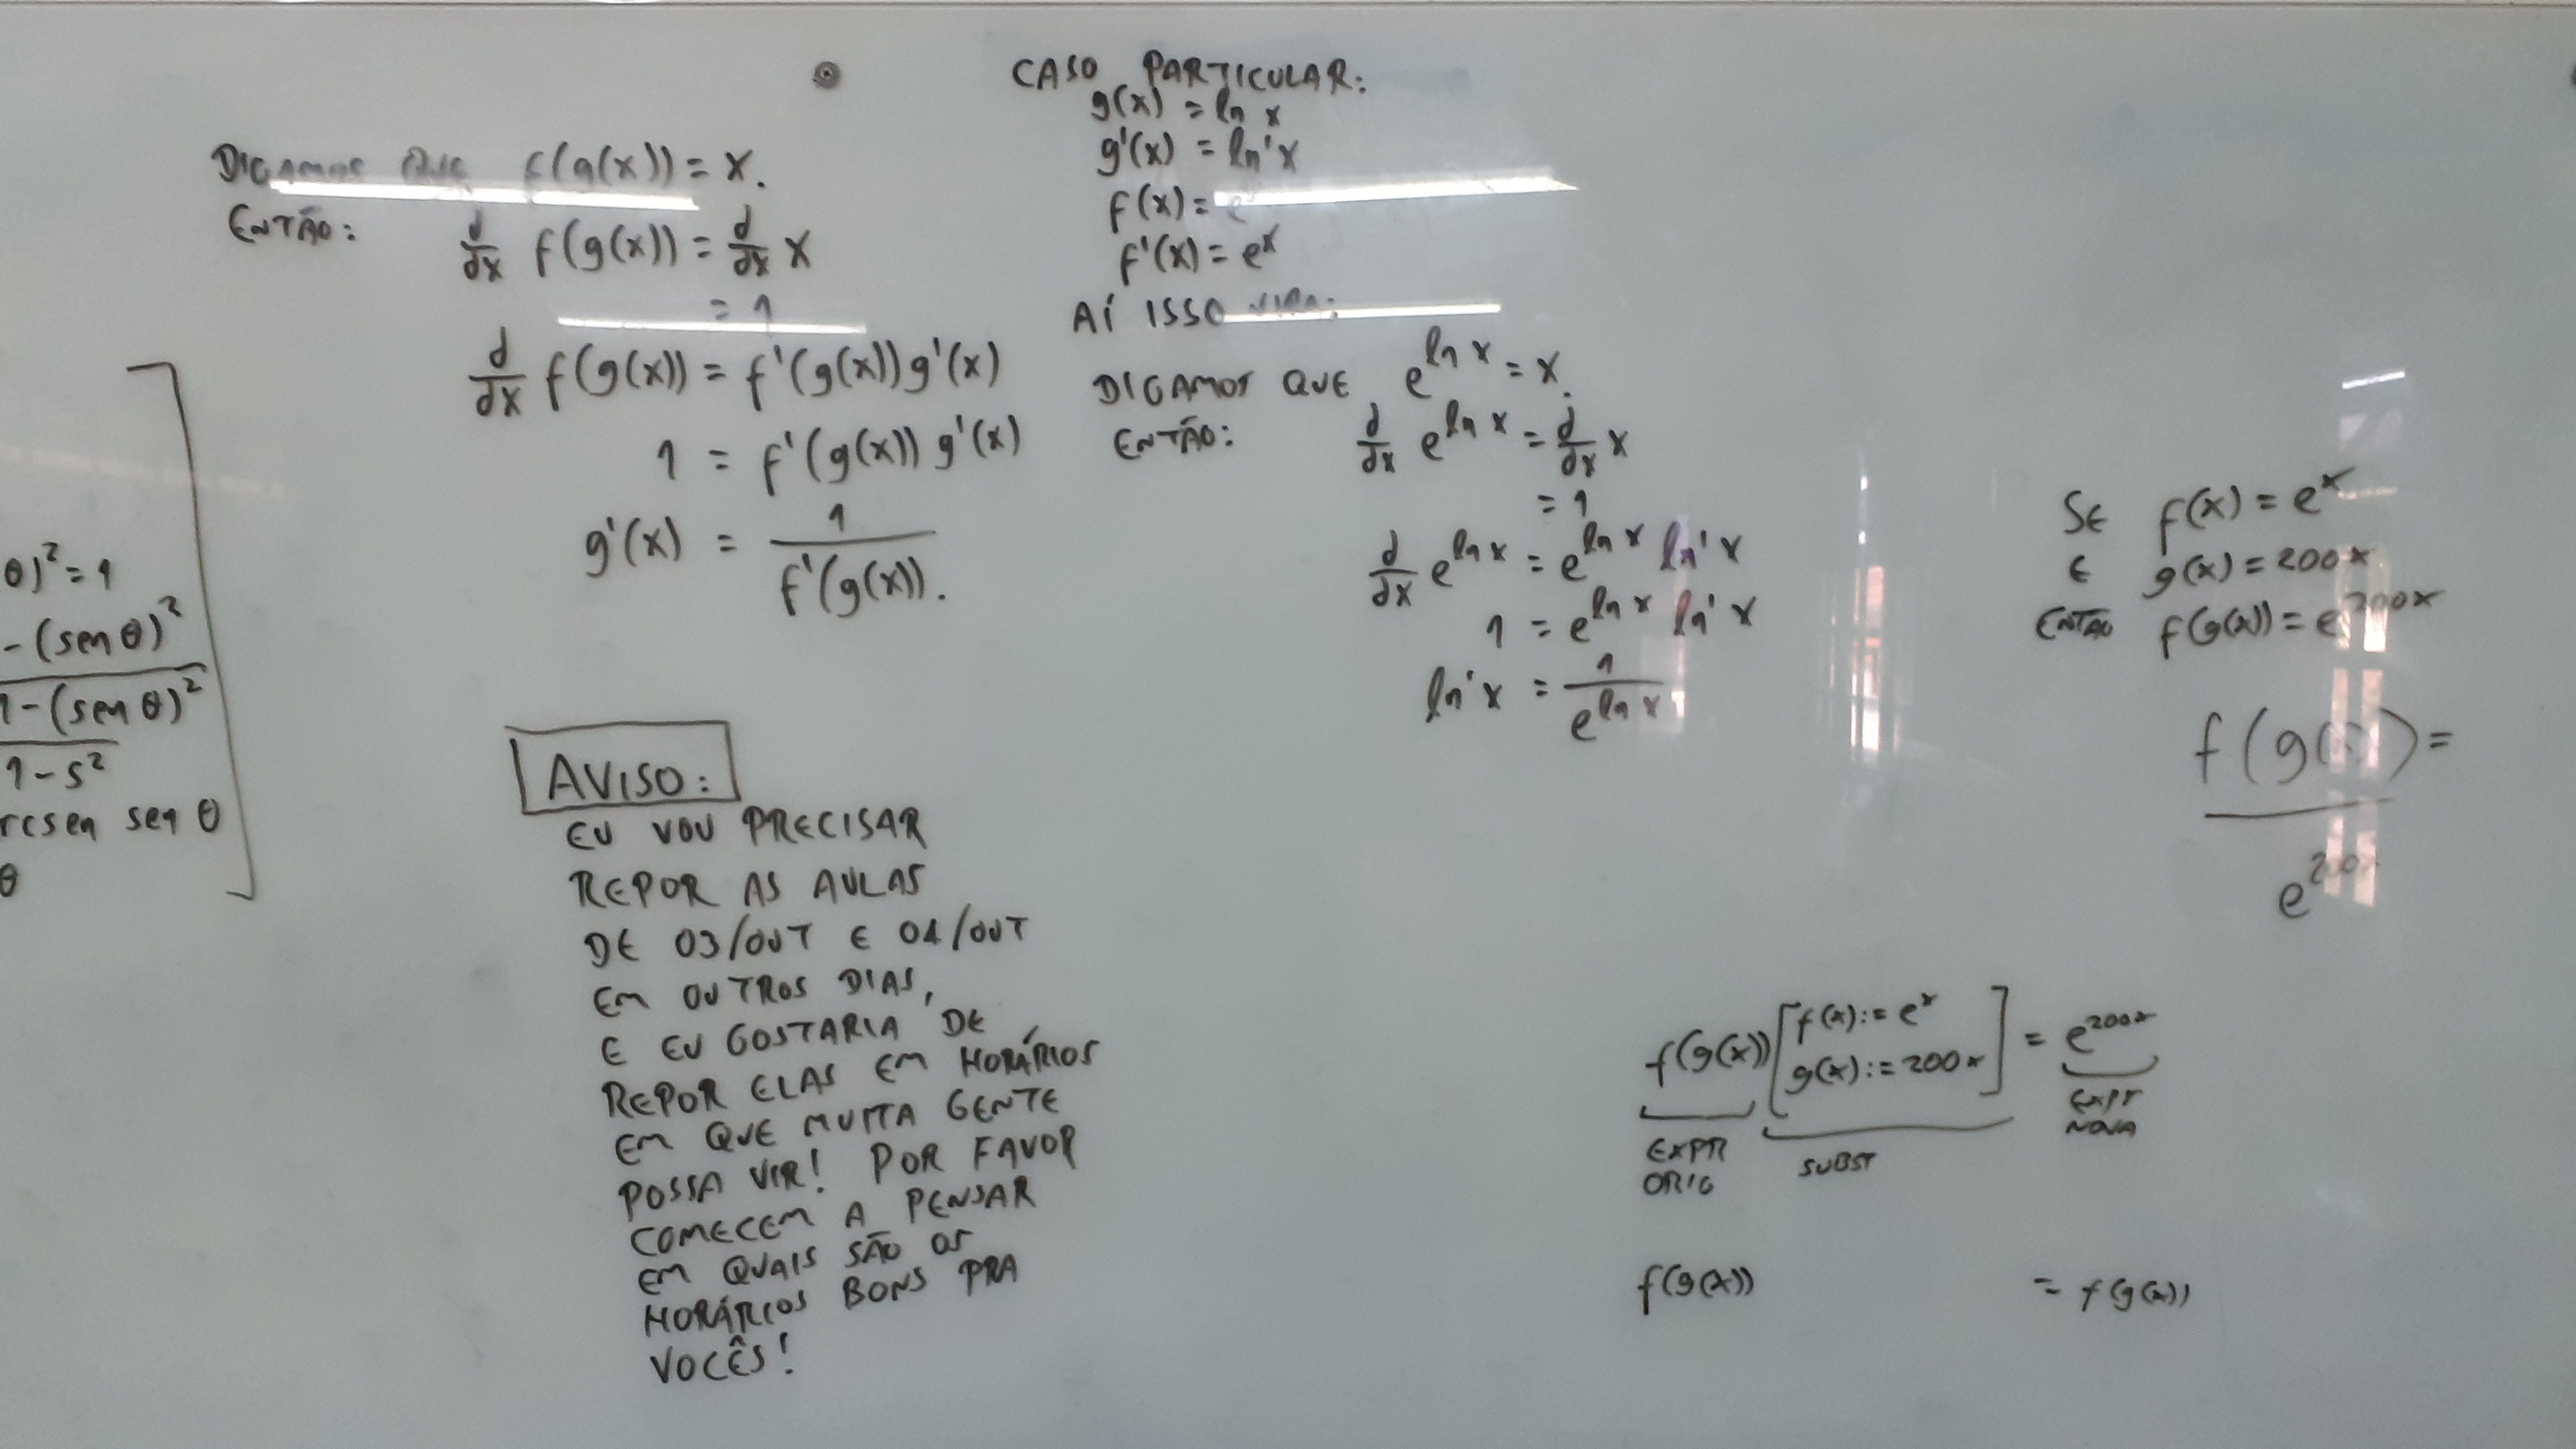 θ)² = 1
- (sen θ)²
1 - (sen θ)²
1 - s²
rcsen sen θ
θ
DIGAMOS QUE f(g(x)) = x.
ENTÃO: d/dx f(g(x)) = d/dx x
= 1
d/dx f(g(x)) = f'(g(x)) g'(x)
1 = f'(g(x)) g'(x)
g'(x) = 1/f'(g(x)).
AVISO:
EU VOU PRECISAR
REPOR AS AULAS
DE 03/OUT E 04/OUT
EM OUTROS DIAS,
E EU GOSTARIA DE
REPOR ELAS EM HORÁRIOS
EM QUE MUITA GENTE
POSSA VIR! POR FAVOR
COMECEM A PENSAR
EM QUAIS SÃO OS
HORÁRIOS BONS PRA
VOCÊS!
CASO PARTICULAR:
g(x) = ln x
g'(x) = ln' x
f(x) = e
f'(x) = eˣ
AÍ ISSO VIRA:
DIGAMOS QUE e^{ln x} = x.
ENTÃO: d/dx e^{ln x} = d/dx x
= 1
d/dx e^{ln x} = e^{ln x} ln' x
1 = e^{ln x} ln' x
ln' x = 1/e^{ln x}
SE f(x) = eˣ
E g(x) = 200x
ENTÃO f(g(x)) = e^{200x}
f(g(x)) =
e^{200x}
f(g(x)) [f(x) := eˣ
g(x) := 200x] = e^{200x}
EXPR ORIG
SUBST
EXPR NOVA
f(g(x)) = f(g(x))